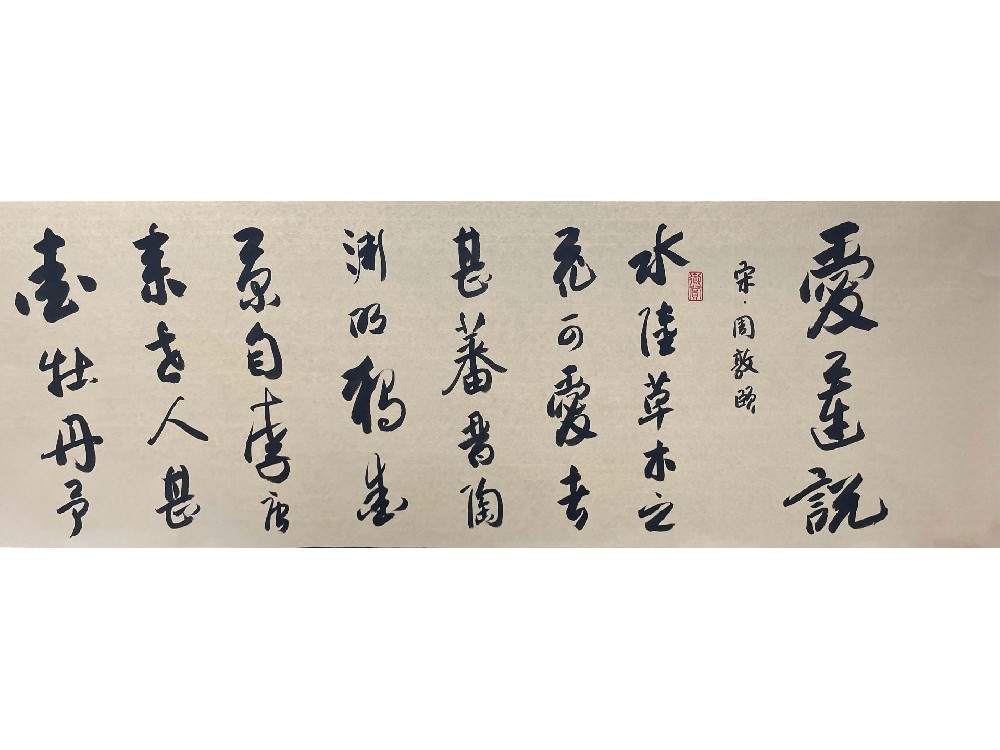 愛蓮說
宋·周敦頤
水陸草木之
花可愛者
甚蕃晋陶
淵明獨愛
菊自李唐
来世人甚
愛牡丹予